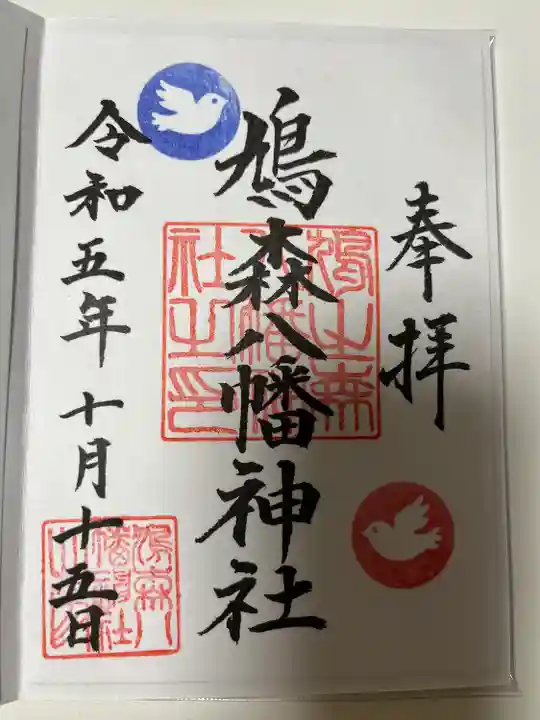 奉拝
鳩森八幡神社
令和五年十月十五日